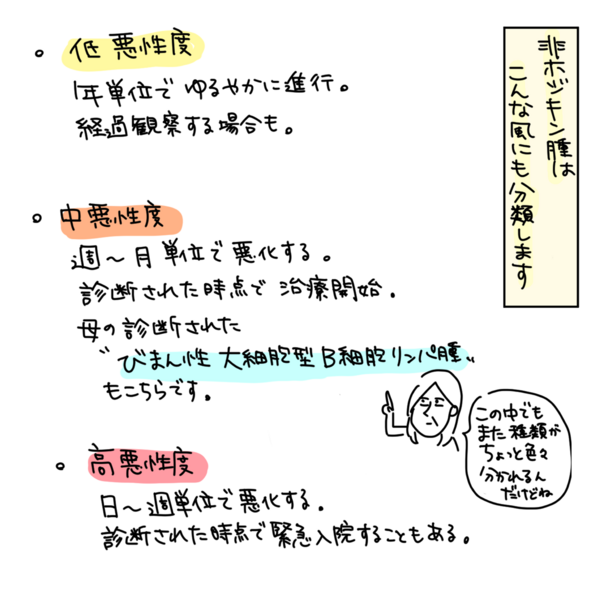 非ホヅキン腫は
こんな風にも分類します
。低悪性度
1年単位でゆるやかに進行。
経過観察する場合も。
。中悪性度
週〜月単位で悪化する。
診断された時点で治療開始.
母の診断された
〝びまん性大細胞型B細胞リンパ腫〟
もこちらです。
この中でも
また種類が
ちょっと色々
分かれるん
だけどね
。高悪性度
日〜週単位で悪化する.
診断された時点で緊急入院することもある。